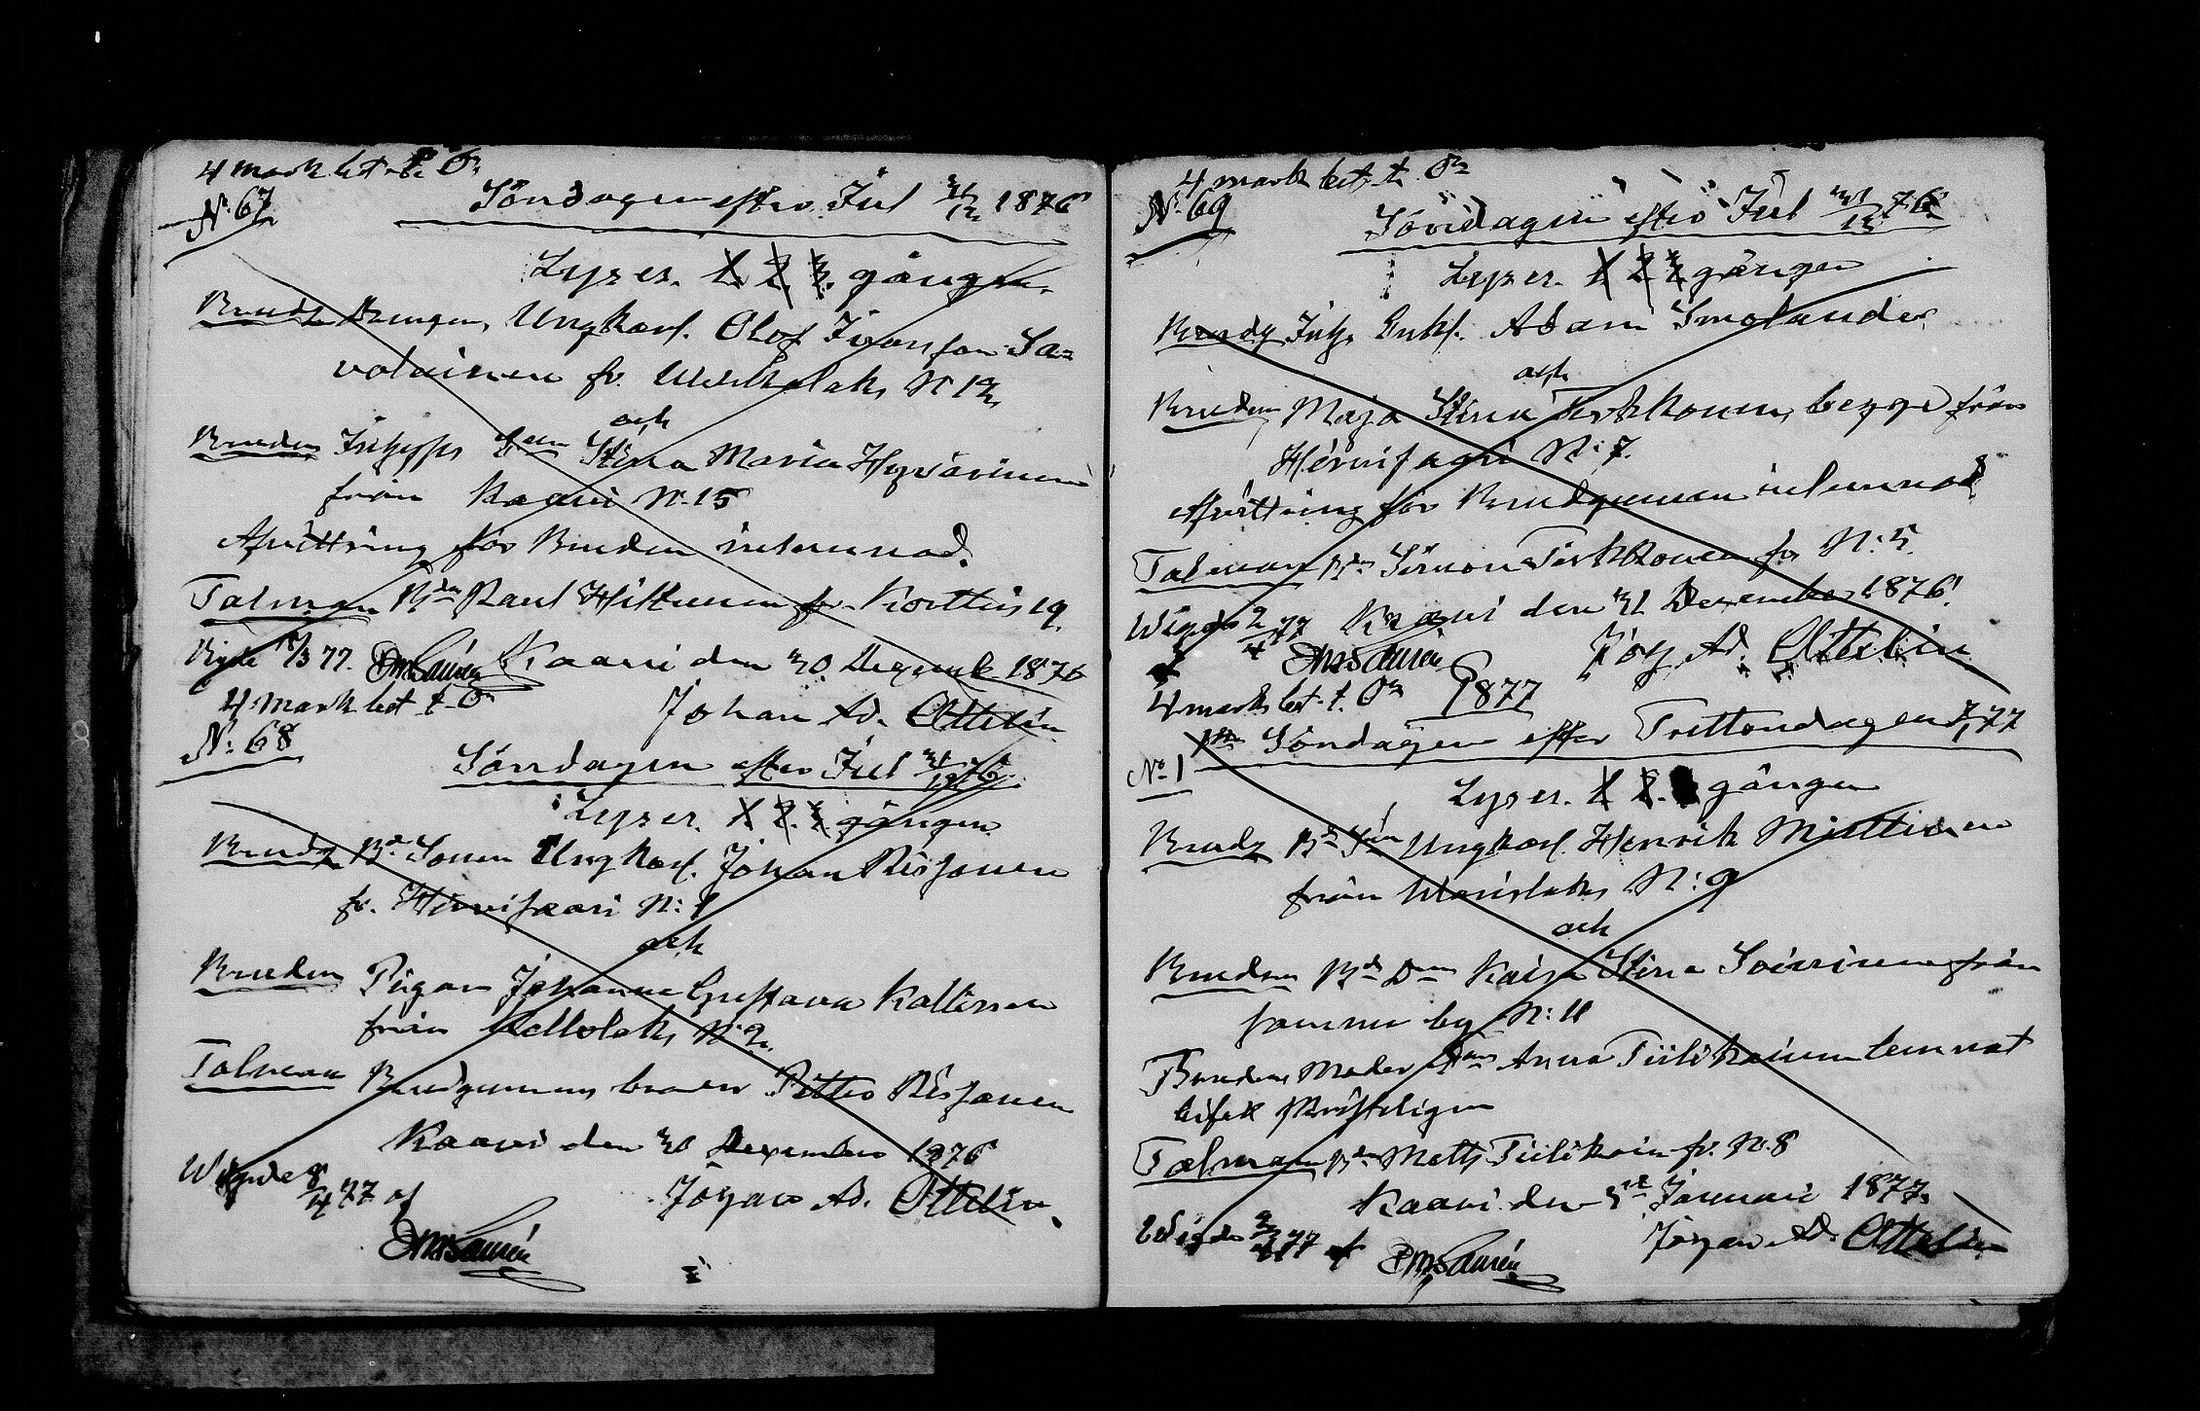 4 mark bet. t. Or
N: 67
Söndagen efter Jul 31/12 1876
Lyses. 1. 2. 3. gången
Brudg Drengen, Ungkarl. Olof Johansson Sa=
volainen fr. N 12,
och
Bruden Inhyses D:en Stina Maria Hyvärinen
från Kaavi N: 15
Afvittring för Bruden inlemnad.
Talman B:den Paul Hiltunen fr. Kortteis 19.
Vigde 18/3 77. Kaavi den 30 Decemb 1876
4 mark bet t. Or
Johan Ad. Ottelin
N: 68
Söndagen efter Jul 31/12 76
Lyses. 1. 2. 3. gången
Brudg B:de Sonen Ungkarl. Johan Räsänen
fr. Hirvisaari N: 1
och
Bruden Pigan Johanna Gustava Kattinen
från N: 2.
Talman Brudgummens broder Petter Räsänen
Kaavi den 30 December 1876
Wigde 8/4 77 af
Johan Ad. Ottelin.
4 mark bet. t. Or
N: 69
Söndagen efter Jul 31/12 76
Lyses. 1 2 3 gången
Brudg Inhys Enkl. Adam Smolander
och
Bruden Maja Stina Pirkkonen, begge från
N: 7.
Afvittring för Brudgummen inlemnad
Talman B:den Simon Pirkkonen fr N: 5.
Wigde 2/4 77 Kaavi den 31 December 1876.
Joh. Ad. Ottelin
4 mark bet. t. Or 1877
1sta Söndagen efter Trettondagen 7/1 77
No 1
Lyses. 1 2. gången
Brudg B:de Son Ungkarl. Henrik Miettinen
från N: 9
och
Bruden B:de D:en Kaisa Stina Soininen från
samma by N: 11
Brudens Moder Anna Tiilikainen lemnat
bifall skrifteligen
Talman B:den Matts Tiilikain fr. N: 8
Kaavi den Januari 1877.
Wigde 77 af
Johan Ad. Ottelin